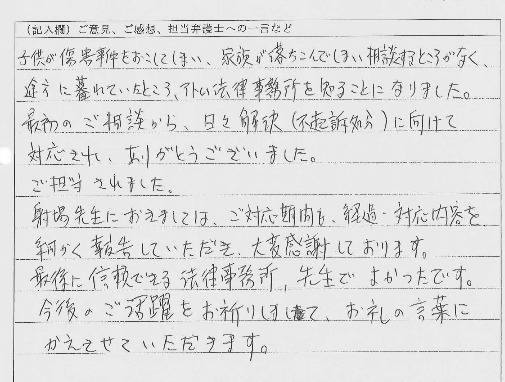 （記入欄）ご意見、ご感想、担当弁護士への一言など
子供が傷害事件をおこしてしまい、家族が落ちこんでしまい相談するところがなく、
途方に暮れていたところ、アトム法律事務所を知ることになりました。
最初のご相談から、日々解決（不起訴処分）に向けて
対応され、ありがとうございました。
ご担当されました。
射場先生におきましては、ご対応期間も、経過・対応内容を
細かく報告していただき、大変感謝しております。
最後に信頼できる法律事務所、先生でよかったです。
今後のご活躍をお祈りしまして、お礼の言葉に
かえさせていただきます。